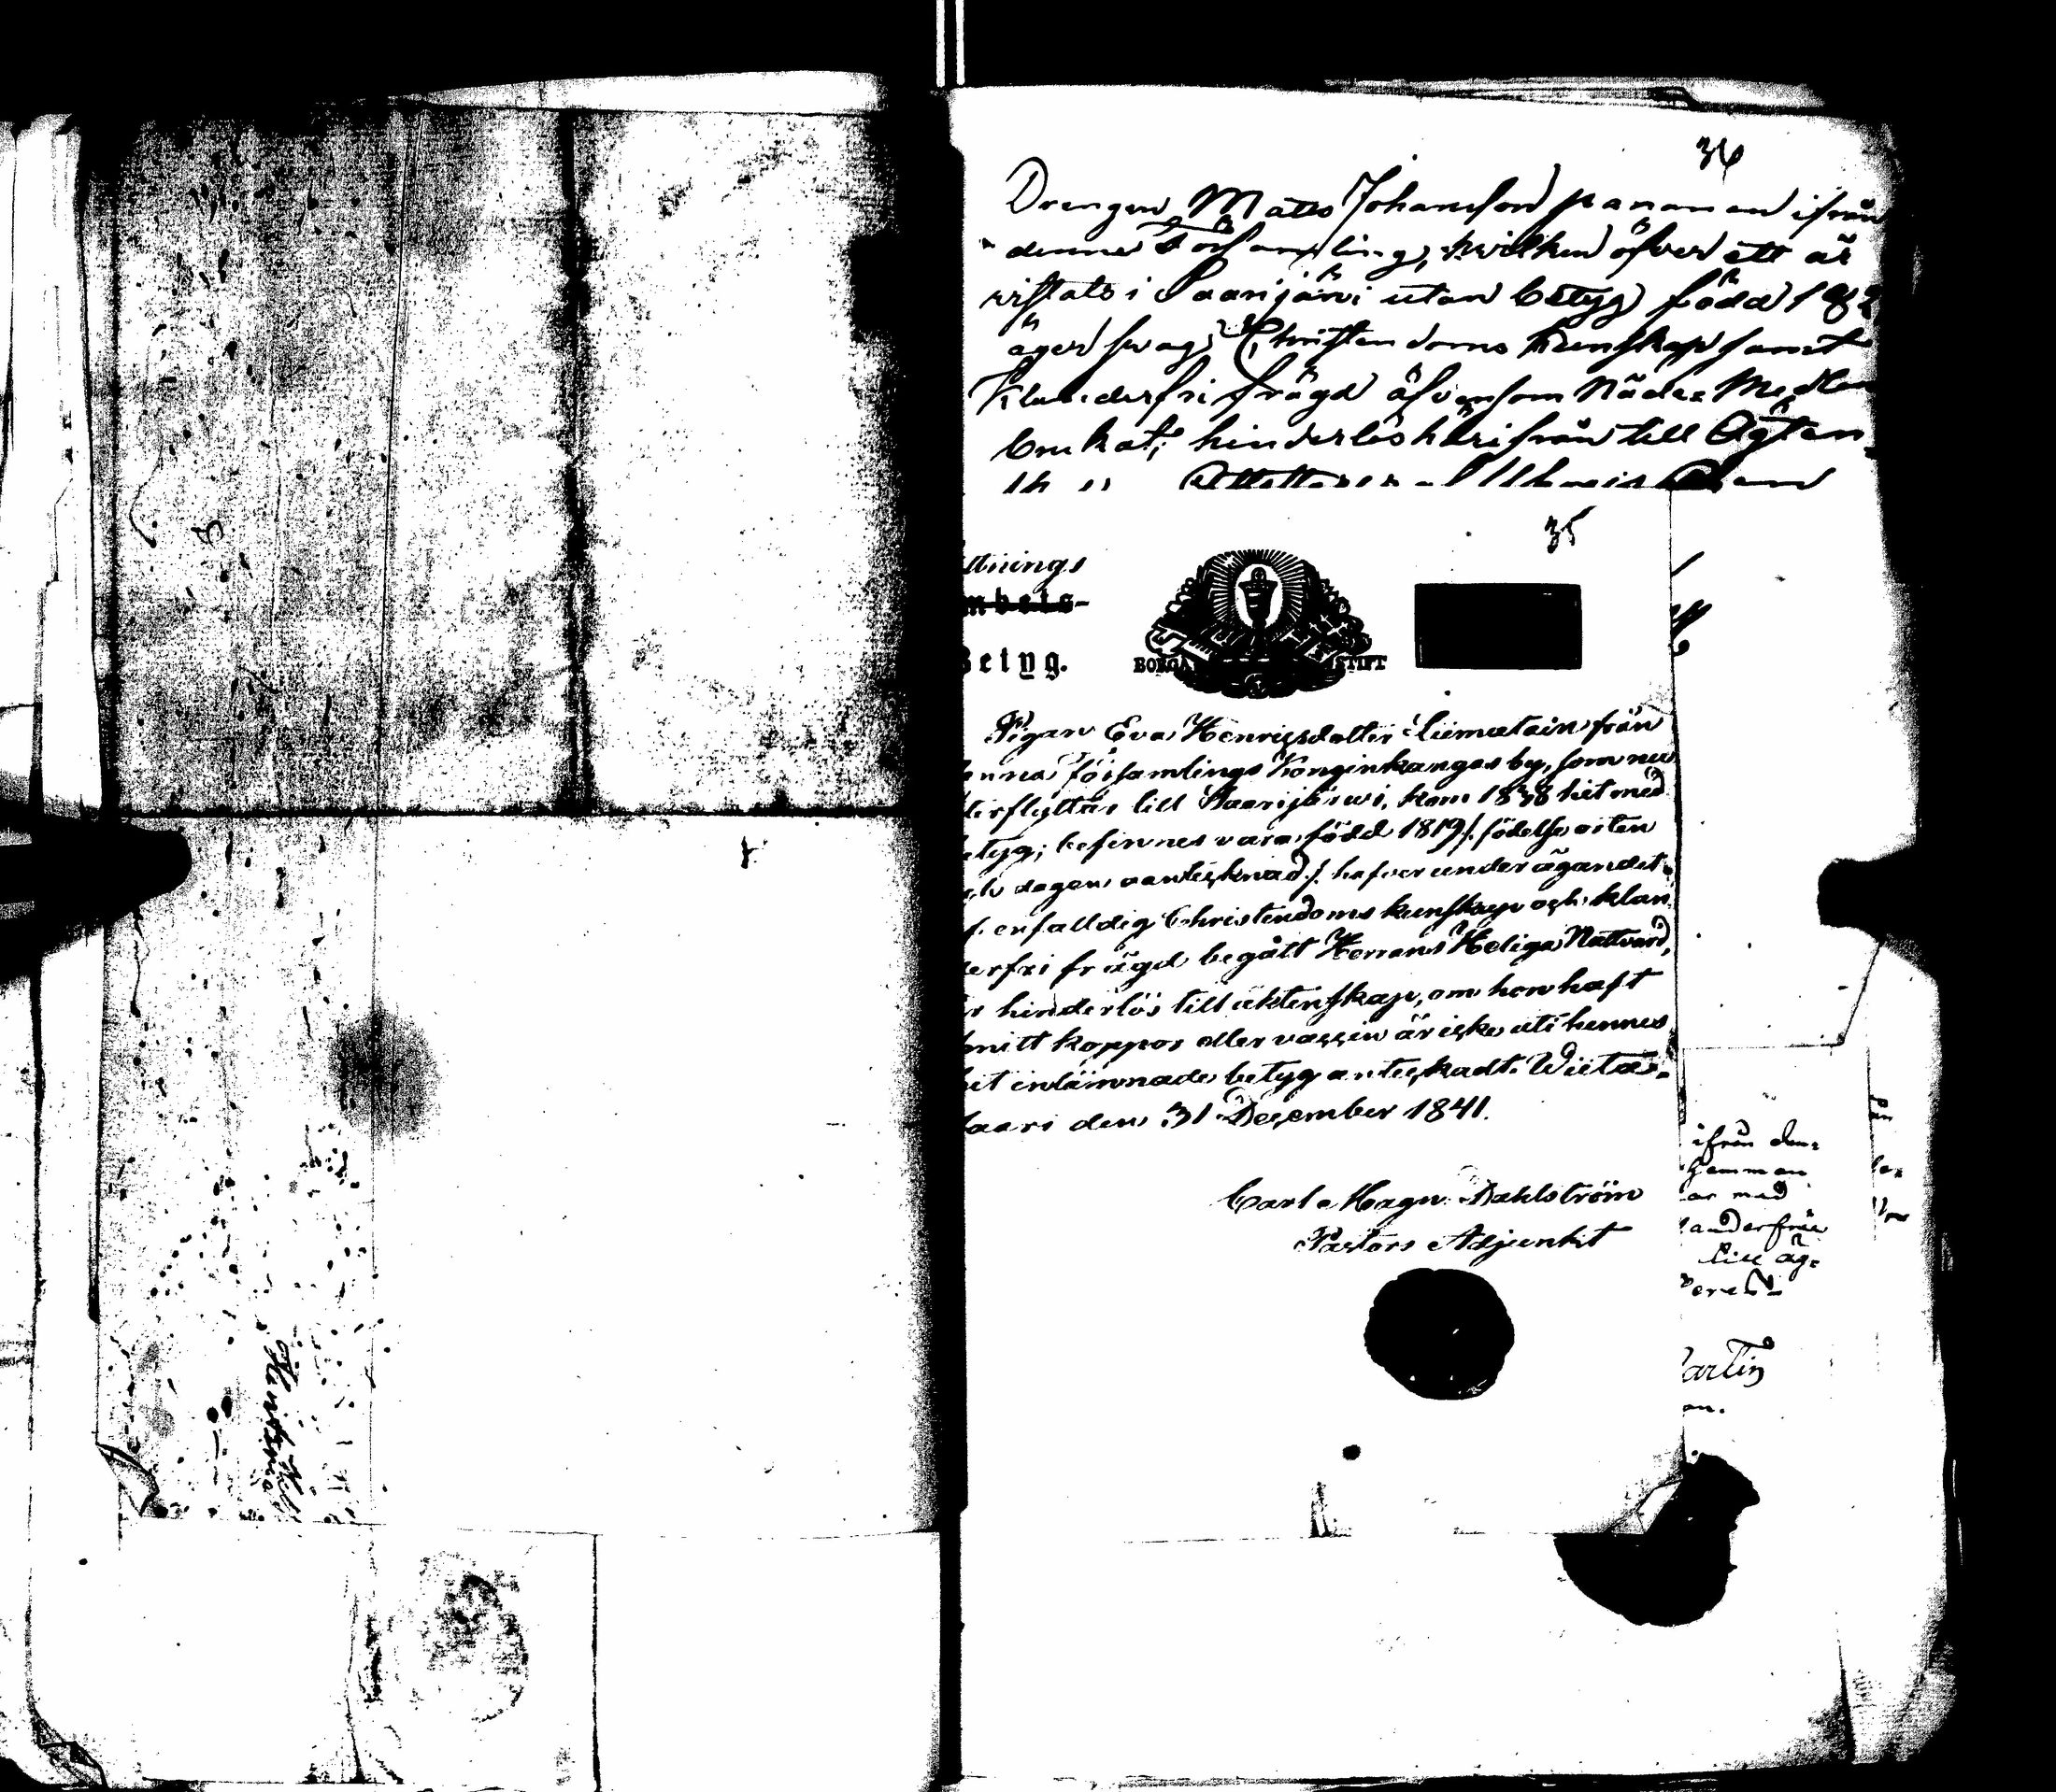 36
Drengen Matts Johansson pananen ifrån
denna Församling, hvilken öfver ett år
vistats i Saarijärvi utan betyg född 18
äger svag Christendoms kunskap samt
Klanderfri frägd äfvensom Nåde Medlen
hinderlös härifrån till Ägten
35
ttnings
mbets-
Betyg.
BORGÅ STIFT
Pigan Eva Henricsdotter Liimatain från
ennes församlings Konginkangas by, som nu
terflyttar till Saarijärwi, kom 1838 hit med
etyg; befinnes vara född 1819 /. födelse orten
ch dagen oantecknad /. hafver under ägandet
f enfalldig Christendoms kunskap och klan
erfri frägd begått Herrans Heliga Nattvard,
r hinderlös till äktenskap, om hon haft
mitt koppor eller vaccin är icke uti hennes
hit inlämnade betyg anteckadt. Wiitas-
saari den 31 December 1841.
Carl Magn. Dahlström
Pastors Adjunkt
ifrån den-
ar med
anderfri
till äg-
artin
an.